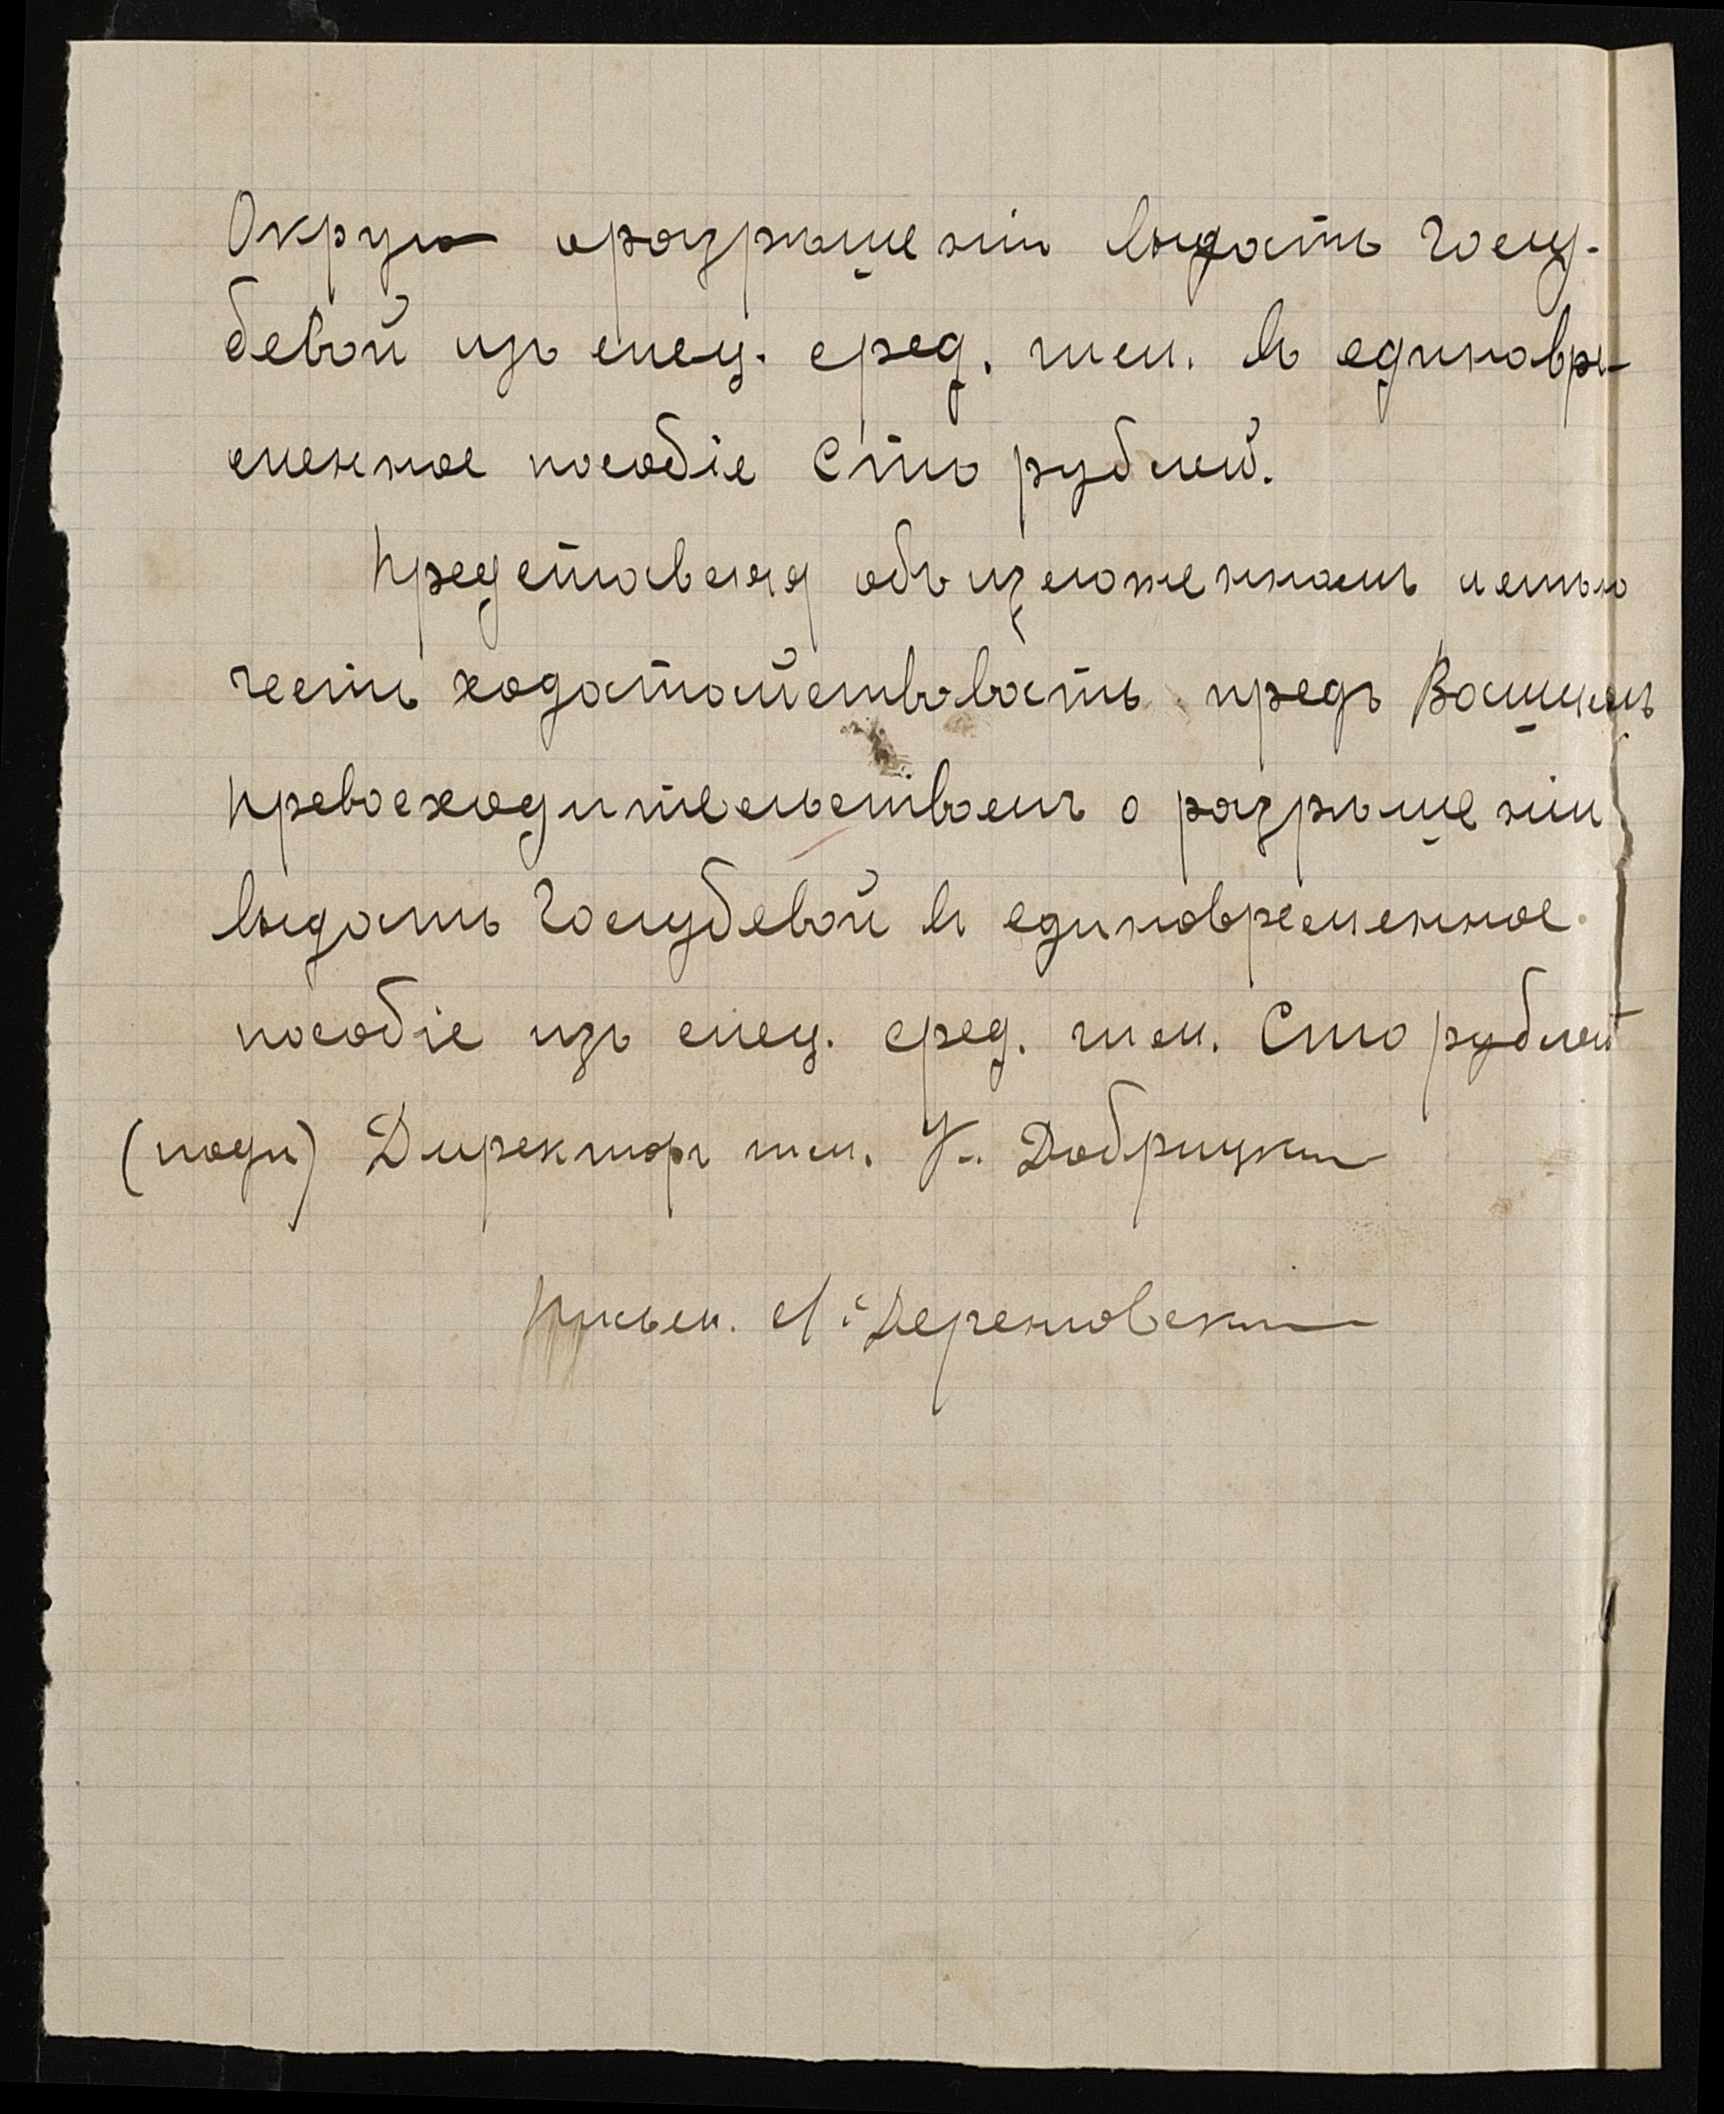 Округа о разрѣшеніи выдать Голу-
бевой изъ спец. сред. гим. въ единовре-
менное пособіе Сто рублей.
Представляя объ изложенномъ имѣю
честь ходатайствовать предъ Вашимъ
Превосходительствомъ о разрѣшеніи
выдать Голубевой въ единовременное
пособіе изъ спец. сред. гим. Сто рублей
(подп) Директоръ гим. К. Добрицкій
Письм.